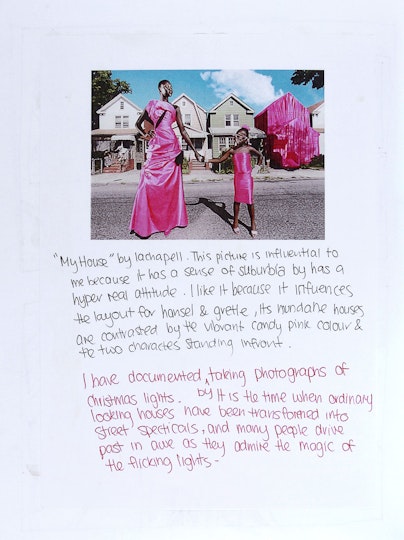 "My House" by lachapell. This picture is influential to
me because it has a sense of suburbia by has a
hyper real attitude. I like it because it influences
the layout for hansel & gretle, its mundane houses
are contrasted by the vibrant candy pink colour &
the two characters standing infront.
I have documented, taking photographs of
christmas lights. by It is the time when ordinary
looking houses have been transformed into
street specticals, and many people drive
past in awe as they admire the magic of
the flicking lights.